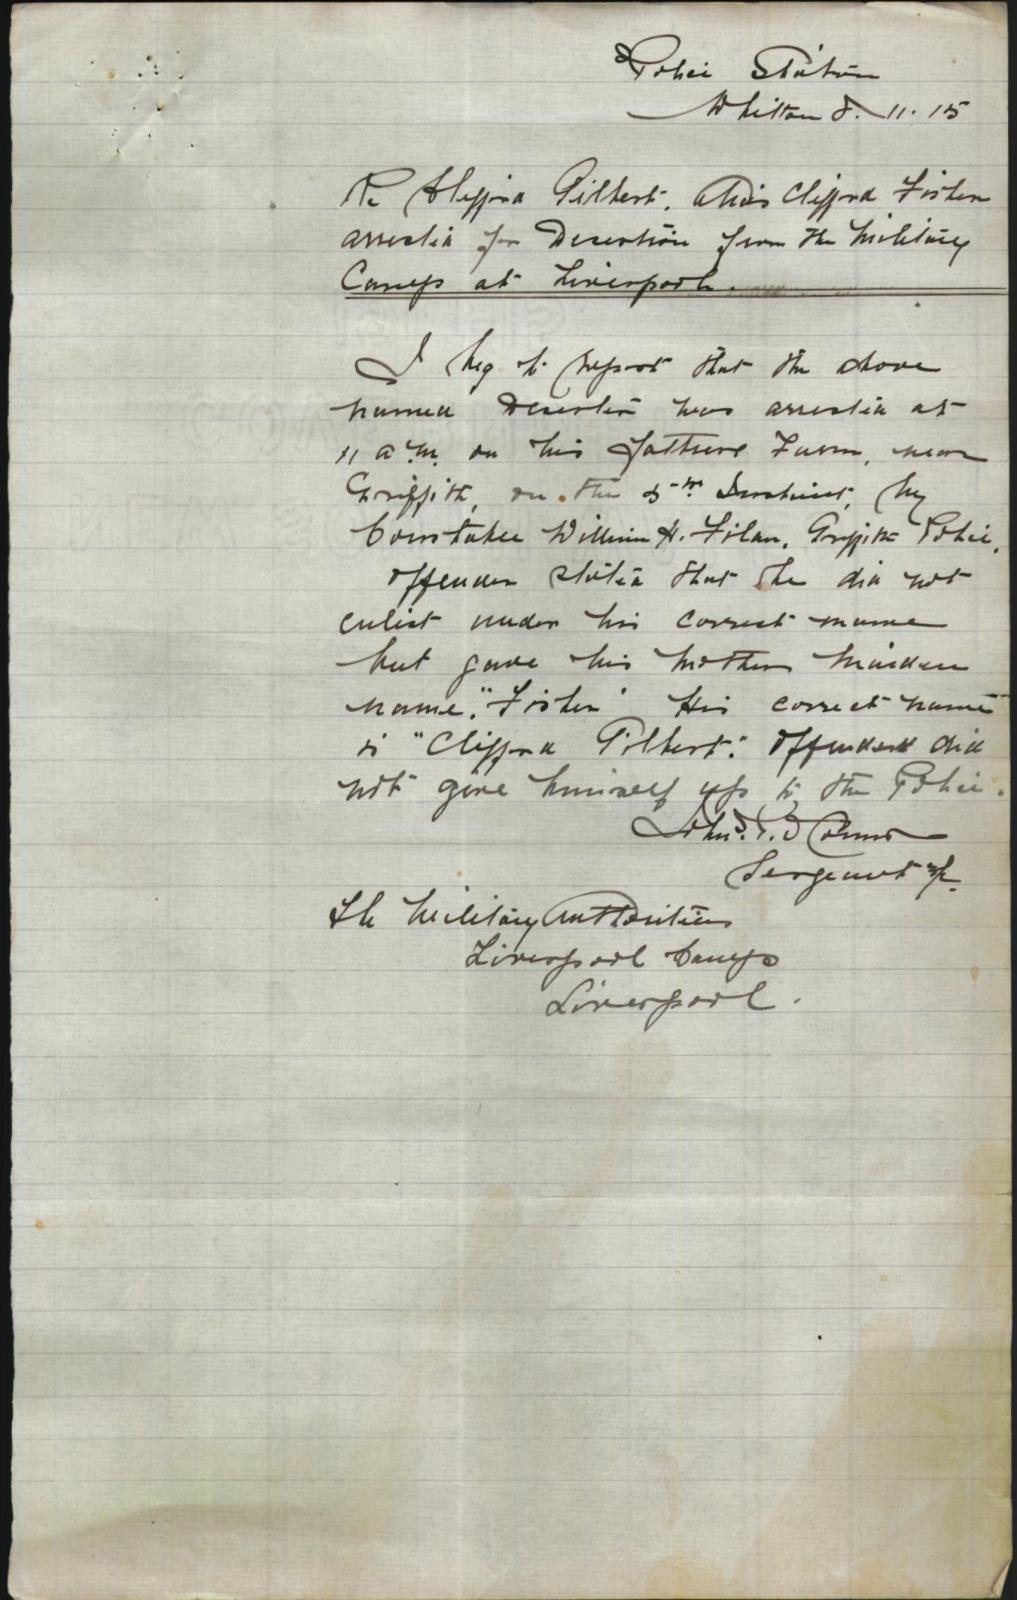 Police Station
Whitton 8. 11. 15
Re Clifford Gilbert, Alias Clifford Fisher
arrested for Desertion from the Military
Camp at Liverpool.
I beg to report that the above
named Deserter was arrested at
11 a.m. on his fathers Farm, near
Griffith, on the 5th Instant, by
Constable William H. Filan, Griffith Police.
Offender stated that he did not
enlist under his correct name
but gave his mothers maiden
name, "Fisher" His correct name
is "Clifford Gilbert". Offender did
not give himself up to the Police.
John P. O'Connor
Sergeant
The Military Authorities
Liverpool Camp
Liverpool.